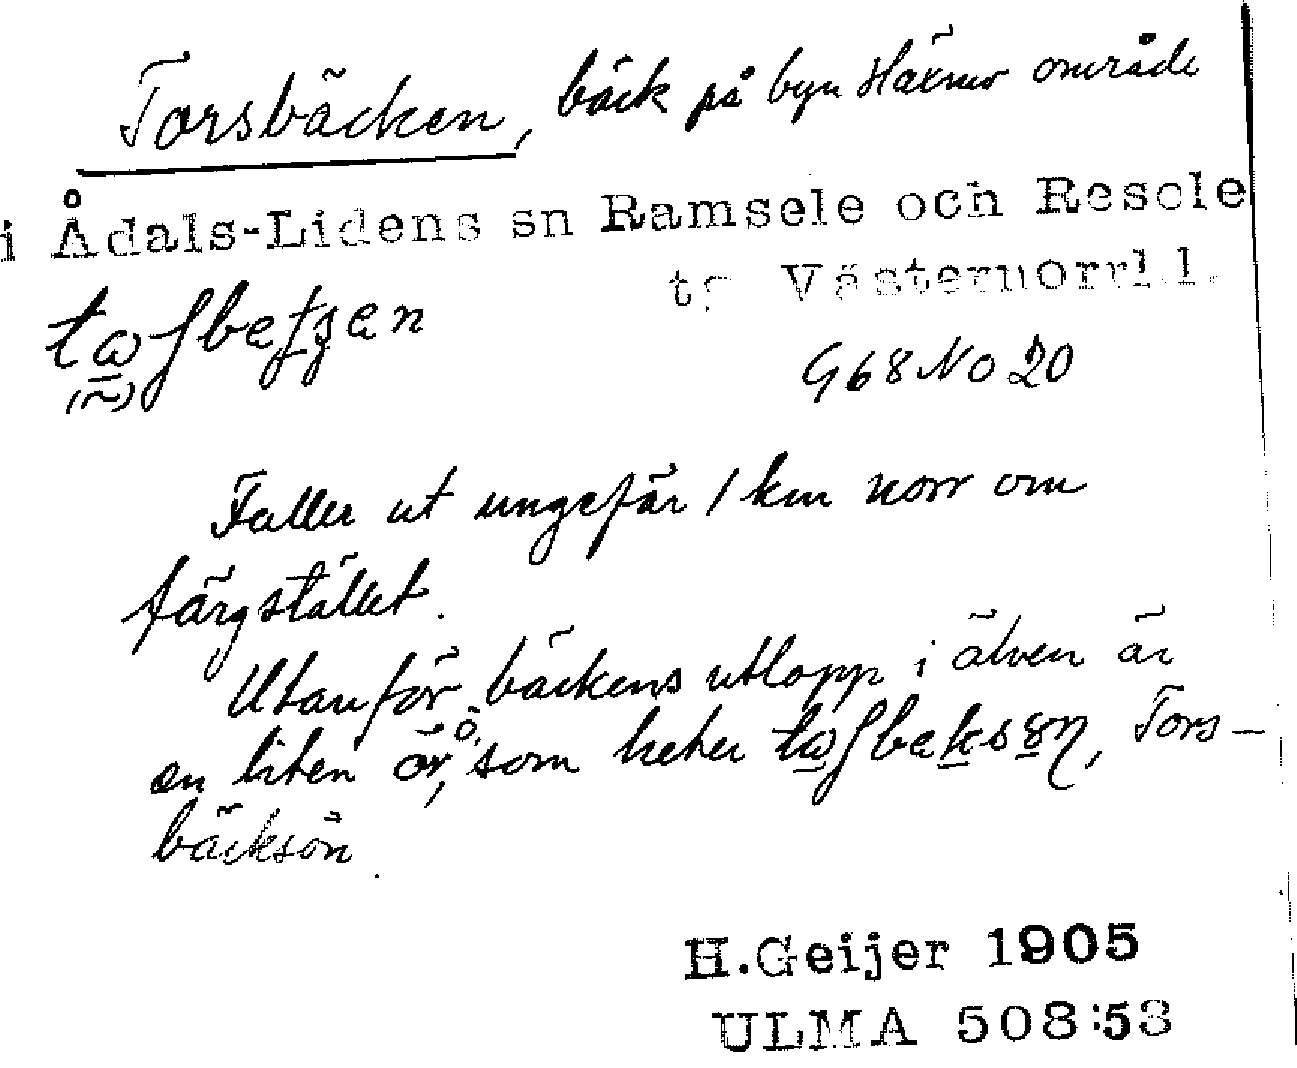 Torsbäcken, bäck på byn Häxmo område
i Ådals-Lidens sn Ramsele och Resele
tg Västernorrl.l.
G68 No 20
Faller ut ungefär 1 km norr om
färgstället.
Utanför bäckens utlopp i älven är
en liten ör, ö, som heter Tors-
bäcksön.
H.Geijer 1905
ULMA 508:53